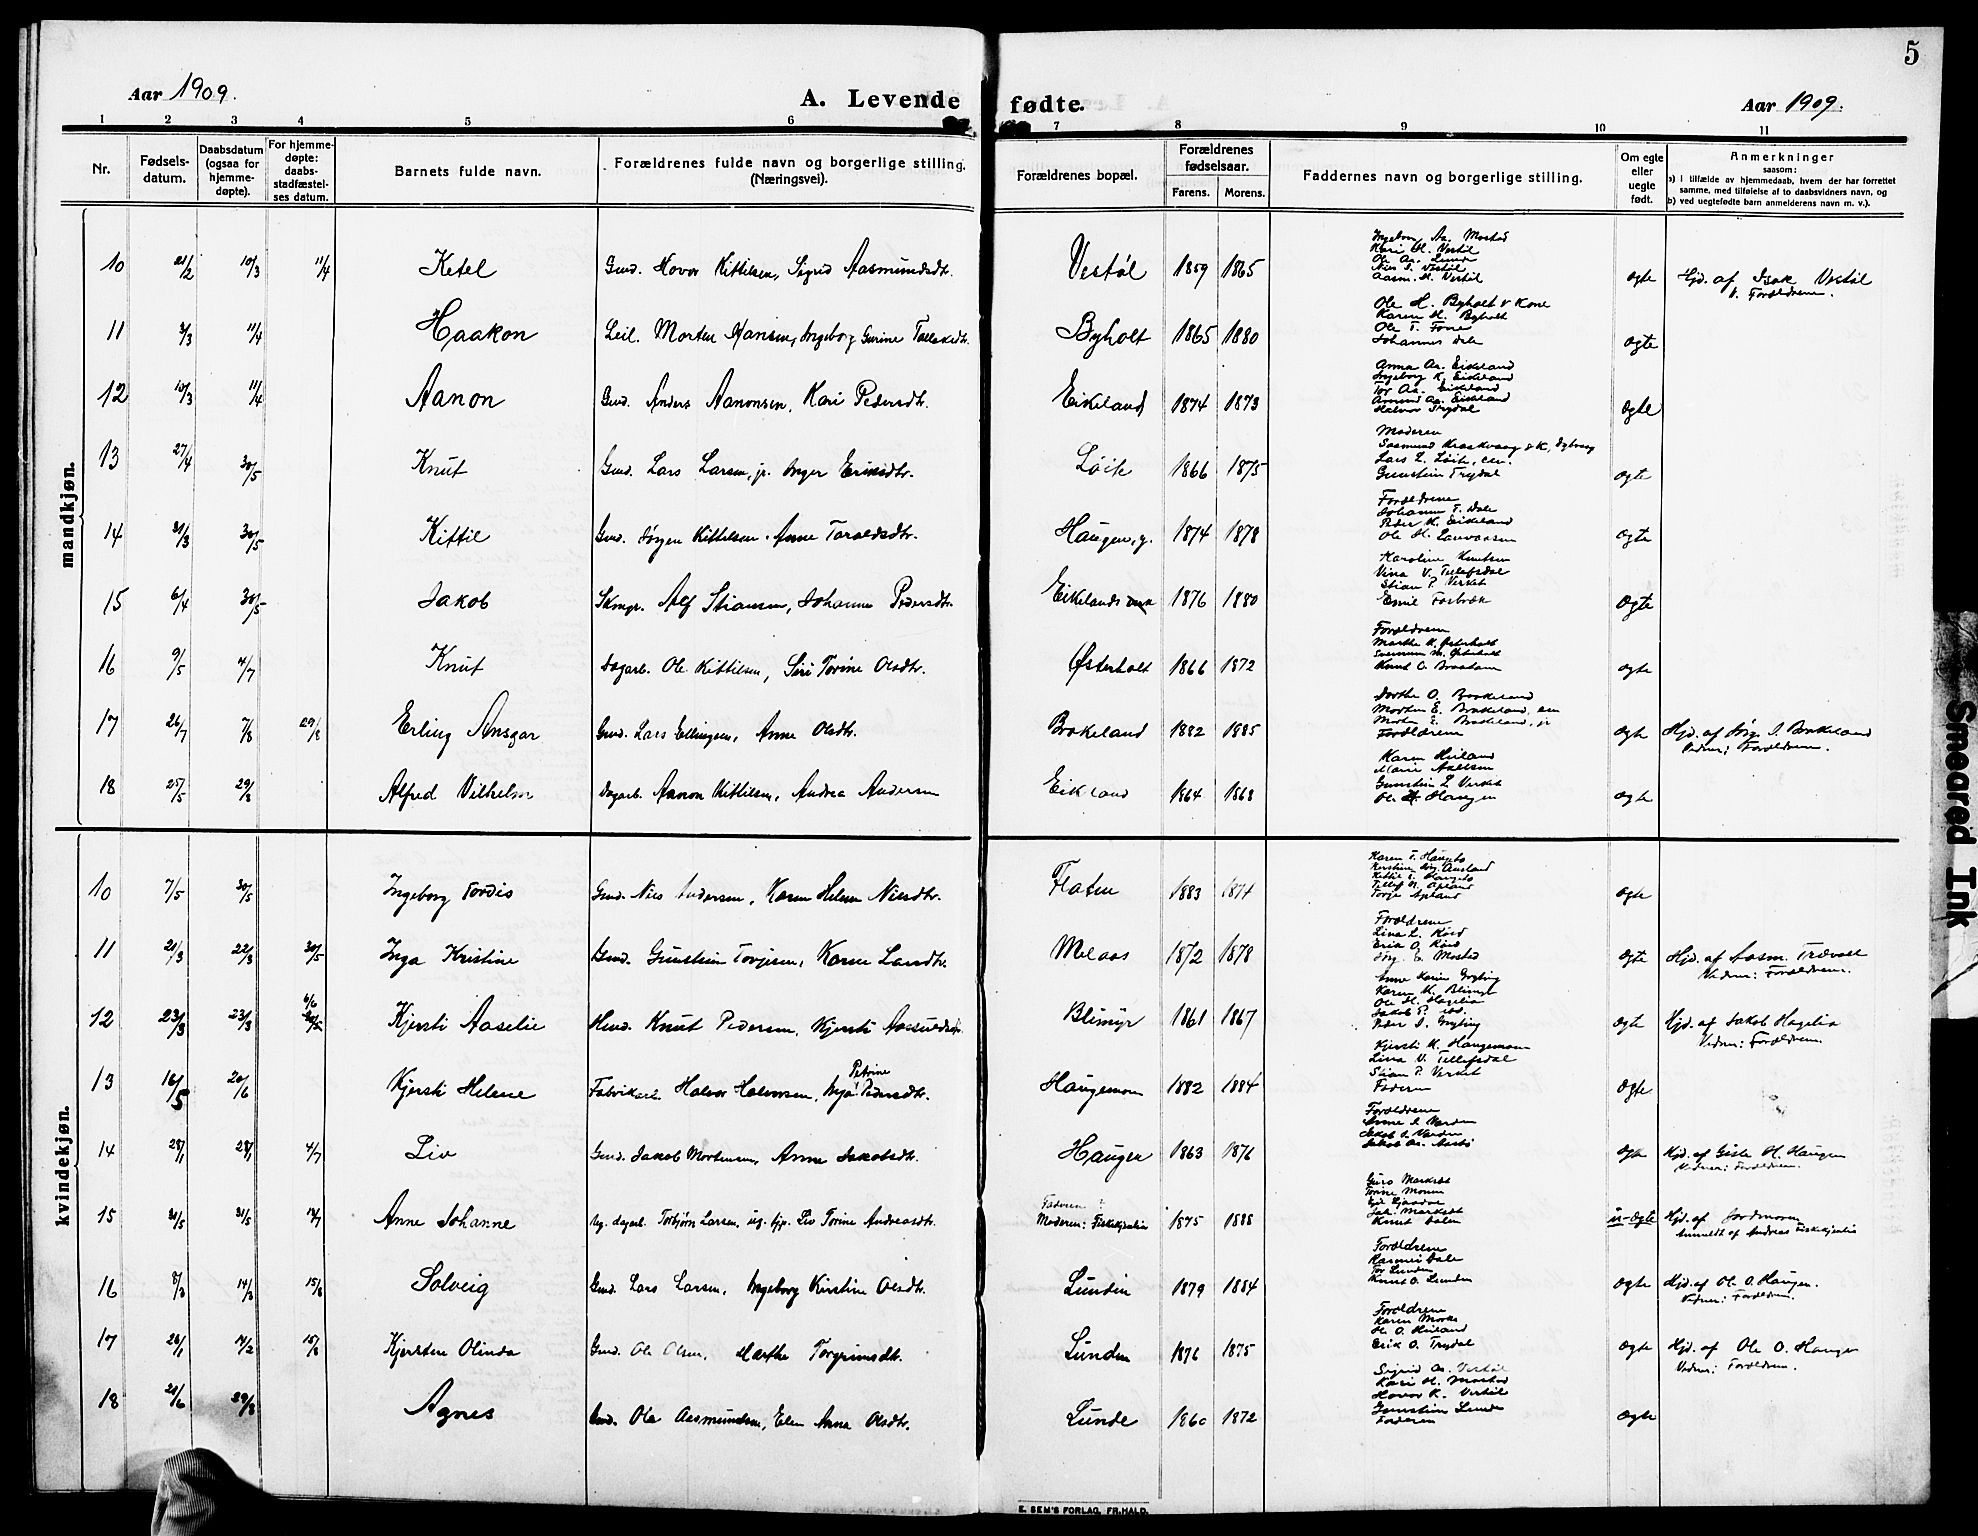 5
Aar 1909.
A. Levende fødte.
Aar 1909.
1 2 3 4 5 6 7 8 9 10 11
Nr.
Fødsels-
datum.
Daabsdatum
(ogsaa for
hjemme-
døpte).
For hjemme-
døpte:
daabs-
stadfæstel-
ses datum.
Barnets fulde navn.
Forældrenes fulde navn og borgerlige stilling.
(Næringsvei).
Forældrenes bopæl.
Forældrenes
fødselsaar.
Farens. Morens.
Faddernes navn og borgerlige stilling.
Om egte
eller
uegte
født.
Anmerkninger
saasom:
a) i tilfælde av hjemmedaab, hvem der har forrettet
samme, med tilføielse af to daabsvidners navn, og
b) ved uegtefødte barn anmelderens navn m. v.).
mandkjøn.
10 21/2 10/3 11/4 Ketel Gmd. Hovor Kittilsen, Sigrid Aasmundsdtr. Vestøl 1859 1865
Ingeborg Aa. Mostad
Kari H. Vestøl
Ole As. Lunde
Nils T. Vestøl
Aasm. H. Vestøl
ægte Hjd. af Isak Vestøl
V. Forældrene.
11 3/3 11/4 Haakon Leil. Morten Hansen, Ingeborg Gurine Tallaksdtr. Byholt 1865 1880
Ole H. Byholt & Kone
Karen H. Byholt
Ole T. Fone
Johannes Dale
ægte
12 10/3 11/4 Aanon Gmd. Anders Aanonsen, Kari Pedersdtr. Eikeland 1874 1873
Anna Aa. Eikeland
Ingeborg K. Eikeland
Tor Aa. Eikeland
Amund Aa. Eikeland
Halvor Trydal
ægte
13 27/4 30/5 Knut Gmd. Lars Larsen, jr. Inger Eriksdtr. Løite 1866 1875
Moderen
Lars L. Løite, sen.
Gunstein Trydal
ægte
14 31/3 30/5 Kittil Gmd. Jørgen Kittilsen, Anne Taraldsdtr. Haugen, g. 1874 1878
Forældrene
Johannes F. Dale
Peder K. Eikeland
ægte
15 6/4 30/5 Jakob Skomgr. Alf Stiansen, Johanne Pedersdtr. Eikelands 1876 1880
Karoline Knutsen
Vina V. Tellefsdal
Stian P. Verket
Emil Fosbræk
ægte
16 9/5 4/7 Knut Dagarb. Ole Kittilsen, Siri Torine Olsdtr. Østerholt 1866 1872
Forældrene
Marthe K. Østerholt
Knut O. Braaten
ægte
17 26/7 7/8 29/8 Erling Ansgar Gmd. Lars Ellingsen, Anne Olsdtr. Brokeland 1882 1885
Dorthe O. Brokeland
Morten E. Brokeland, sen
Morten E. Brokeland, jr
Forældrene
ægte Hjd. af Jørg. I. Brokeland
Vidner: Forældrene.
18 25/5 29/8 Alfred Vilhelm Dagarb. Aanon Kittilsen, Andrea Andersen Eikeland 1864 1868
Karen Heiland
Marie Axelsen
Gunstein L. Verket
Ole Haugen
ægte
kvindekjøn.
10 7/5 30/5 Ingeborg Tordis Gmd. Nils Andersen, Karen Helene Nilsdtr. Flaten 1883 1874
Karen T. Haugebo
Kittil T. Haugebo
Tellef N. Apland
Torge Apland
ægte
11 21/3 22/3 30/5 Inga Kristine Gmd. Gunstein Torjusen, Karen Larsdtr. Melaas 1872 1878
Forældrene
Lina L. Røed
Erik O. Røed
Jørg. E. Mostad
ægte Hjd. af Aasm. Trævatt
Vidner: Forældrene.
12 23/3 23/3 6/6 30/5 Kjersti Aaselie Hmd. Knut Pedersen, Kjersti Aasuldsdtr. Blimyr 1861 1867
Anne Karin Gryting
Karen K. Blimyr
Ole H. Hagelia
Peder I. Gryting
ægte Hjd. af Jakob Hagelia
Vidner: Forældrene.
13 16/5 20/6 Kjersti Helene Fabrikarb. Halvor Halvorsen, Anja Petrine Pedersdtr. Haugemoen 1882 1884
Kjersti K. Haugemoen
Lina V. Tellefsdal
Stian P. Verket
Faderen
ægte
14 28/1 28/1 4/7 Liv Gmd. Jakob Mortensen, Anne Jakobsdtr. Haugen 1863 1876
Forældrene
Anne I. Værden
Jakob I. Værden
ægte Hjd. af Gisle H. Haugen
Vidner: Forældrene.
15 31/5 31/5 18/7 Anne Johanne Ug. dagarb. Torbjørn Larsen, ug. tjp. Liv Torine Andreasdtr. Faderen:
Moderen: Fiskekjenlia 1875 1888
Guro Markset
Torine Moen
Knut Dalen
u-ægte Hjd. af Jordmoren
Anmeldt af Andreas Fiskekjenlia
16 8/3 14/3 15/8 Solveig Gmd. Lars Larsen, Ingeborg Kirstine Olsdtr. Lunden 1879 1884
Forældrene
Rasmus Dale
Tor Lunden
Knut O. Lunden
ægte Hjd. af Ole O. Haugen.
Vidner: Forældrene.
17 26/1 14/2 15/8 Kjersten Olinda Gmd. Ole Olsen, Marthe Torgrimsdtr. Lunden 1876 1875
Forældrene
Karen Morke
Ole O. Heiland
Erik O. Trydal
ægte Hjd. af Ole O. Haugen
Vidner: Forældrene.
18 21/6 29/8 Agnes Gmd. Ole Aasmundsen, Elen Anna Olsdtr. Lunde 1860 1872
Sigrid As. Vestøl
Kari H. Mostad
Hovor K. Vestøl
Gunstein Lunde
Faderen
ægte
E. SEM'S FORLAG, FR.HALD.
Smeared Ink